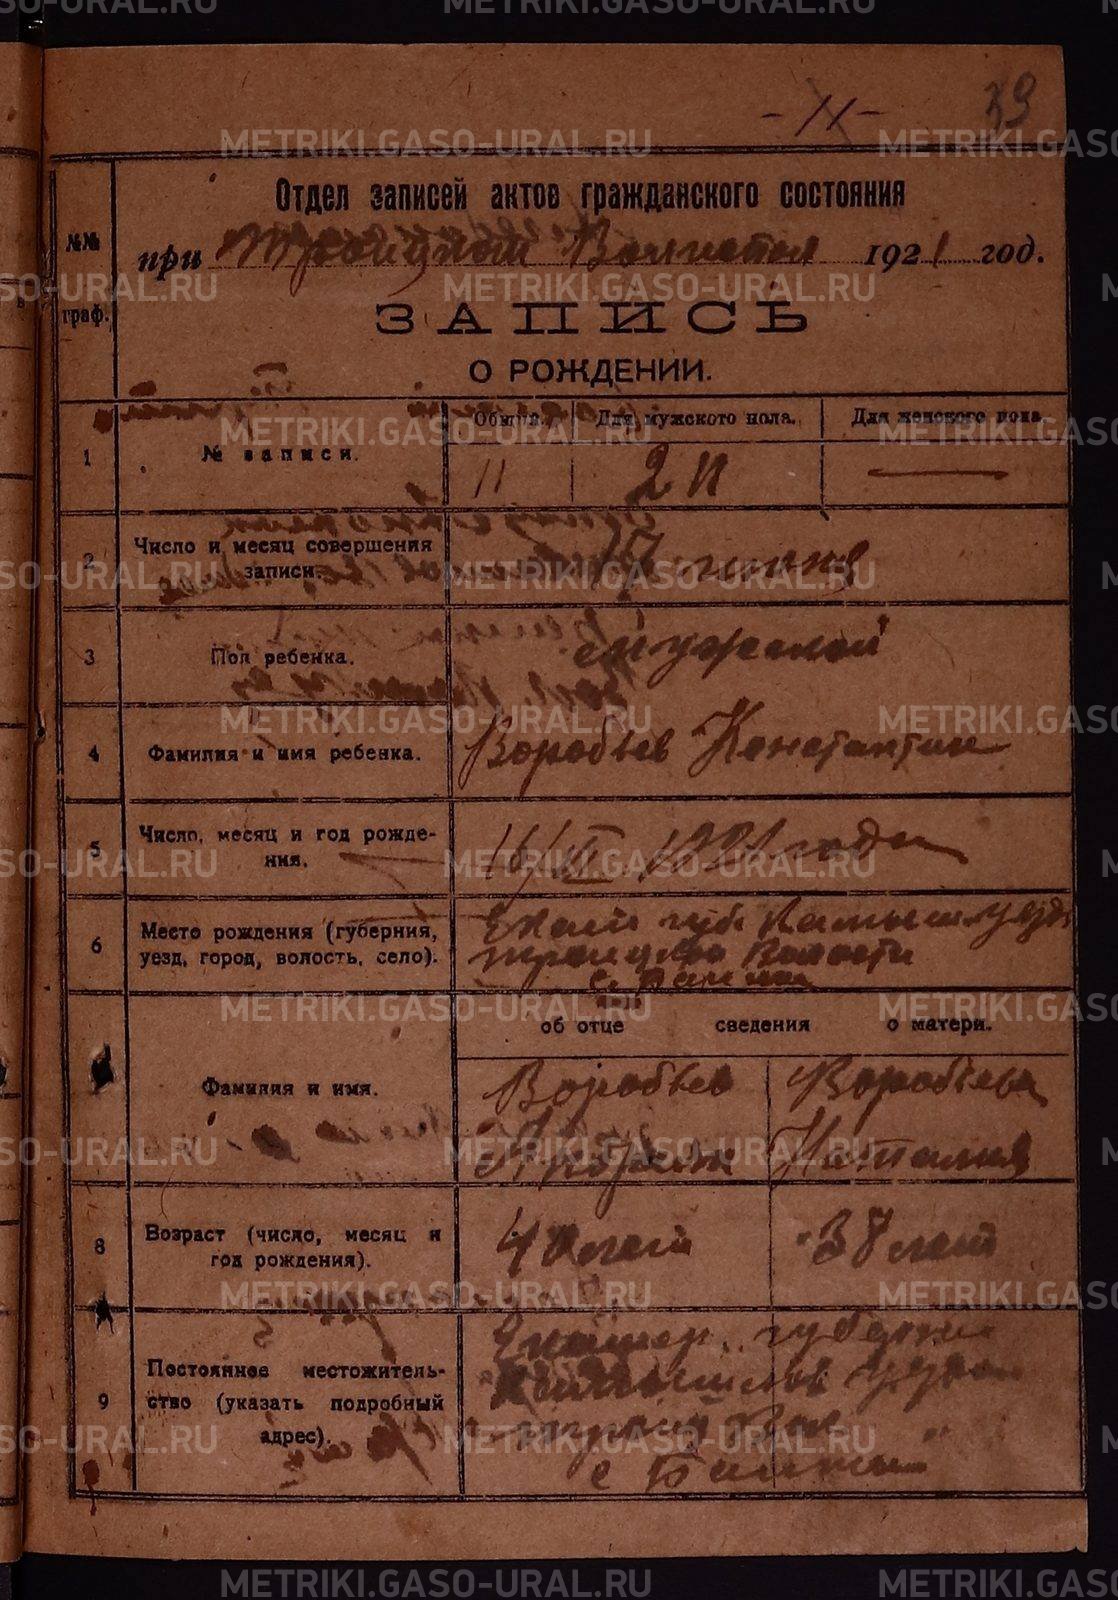 -11- 39
Отдел записей актов гражданского состояния
№№ граф.
при Троицком Волисполк 1921 год.
ЗАПИСЬ
О РОЖДЕНИИ.
Общий. Для мужского пола. Для женского пола
1 № записи. 11 2 —
2 Число и месяц совершения
записи. 17 июня
3 Пол ребенка. мужской
4 Фамилия и имя ребенка. Воробьев Константин
5 Число, месяц и год рожде-
ния. 16/VI 1921 года
6 Место рождения (губерния,
уезд, город, волость, село). Екат губ Камышл уезд
троицкой Волости
с.
об отце сведения о матери.
Фамилия и имя. Воробьев Воробьева
Наталия
8 Возраст (число, месяц и
год рождения). 42 лет 38 лет
9 Постоянное местожитель-
ство (указать подробный
адрес). Екатер. губерни
Камышлов уезда
троиц Вол
с
METRIKI.GASO-URAL.RU